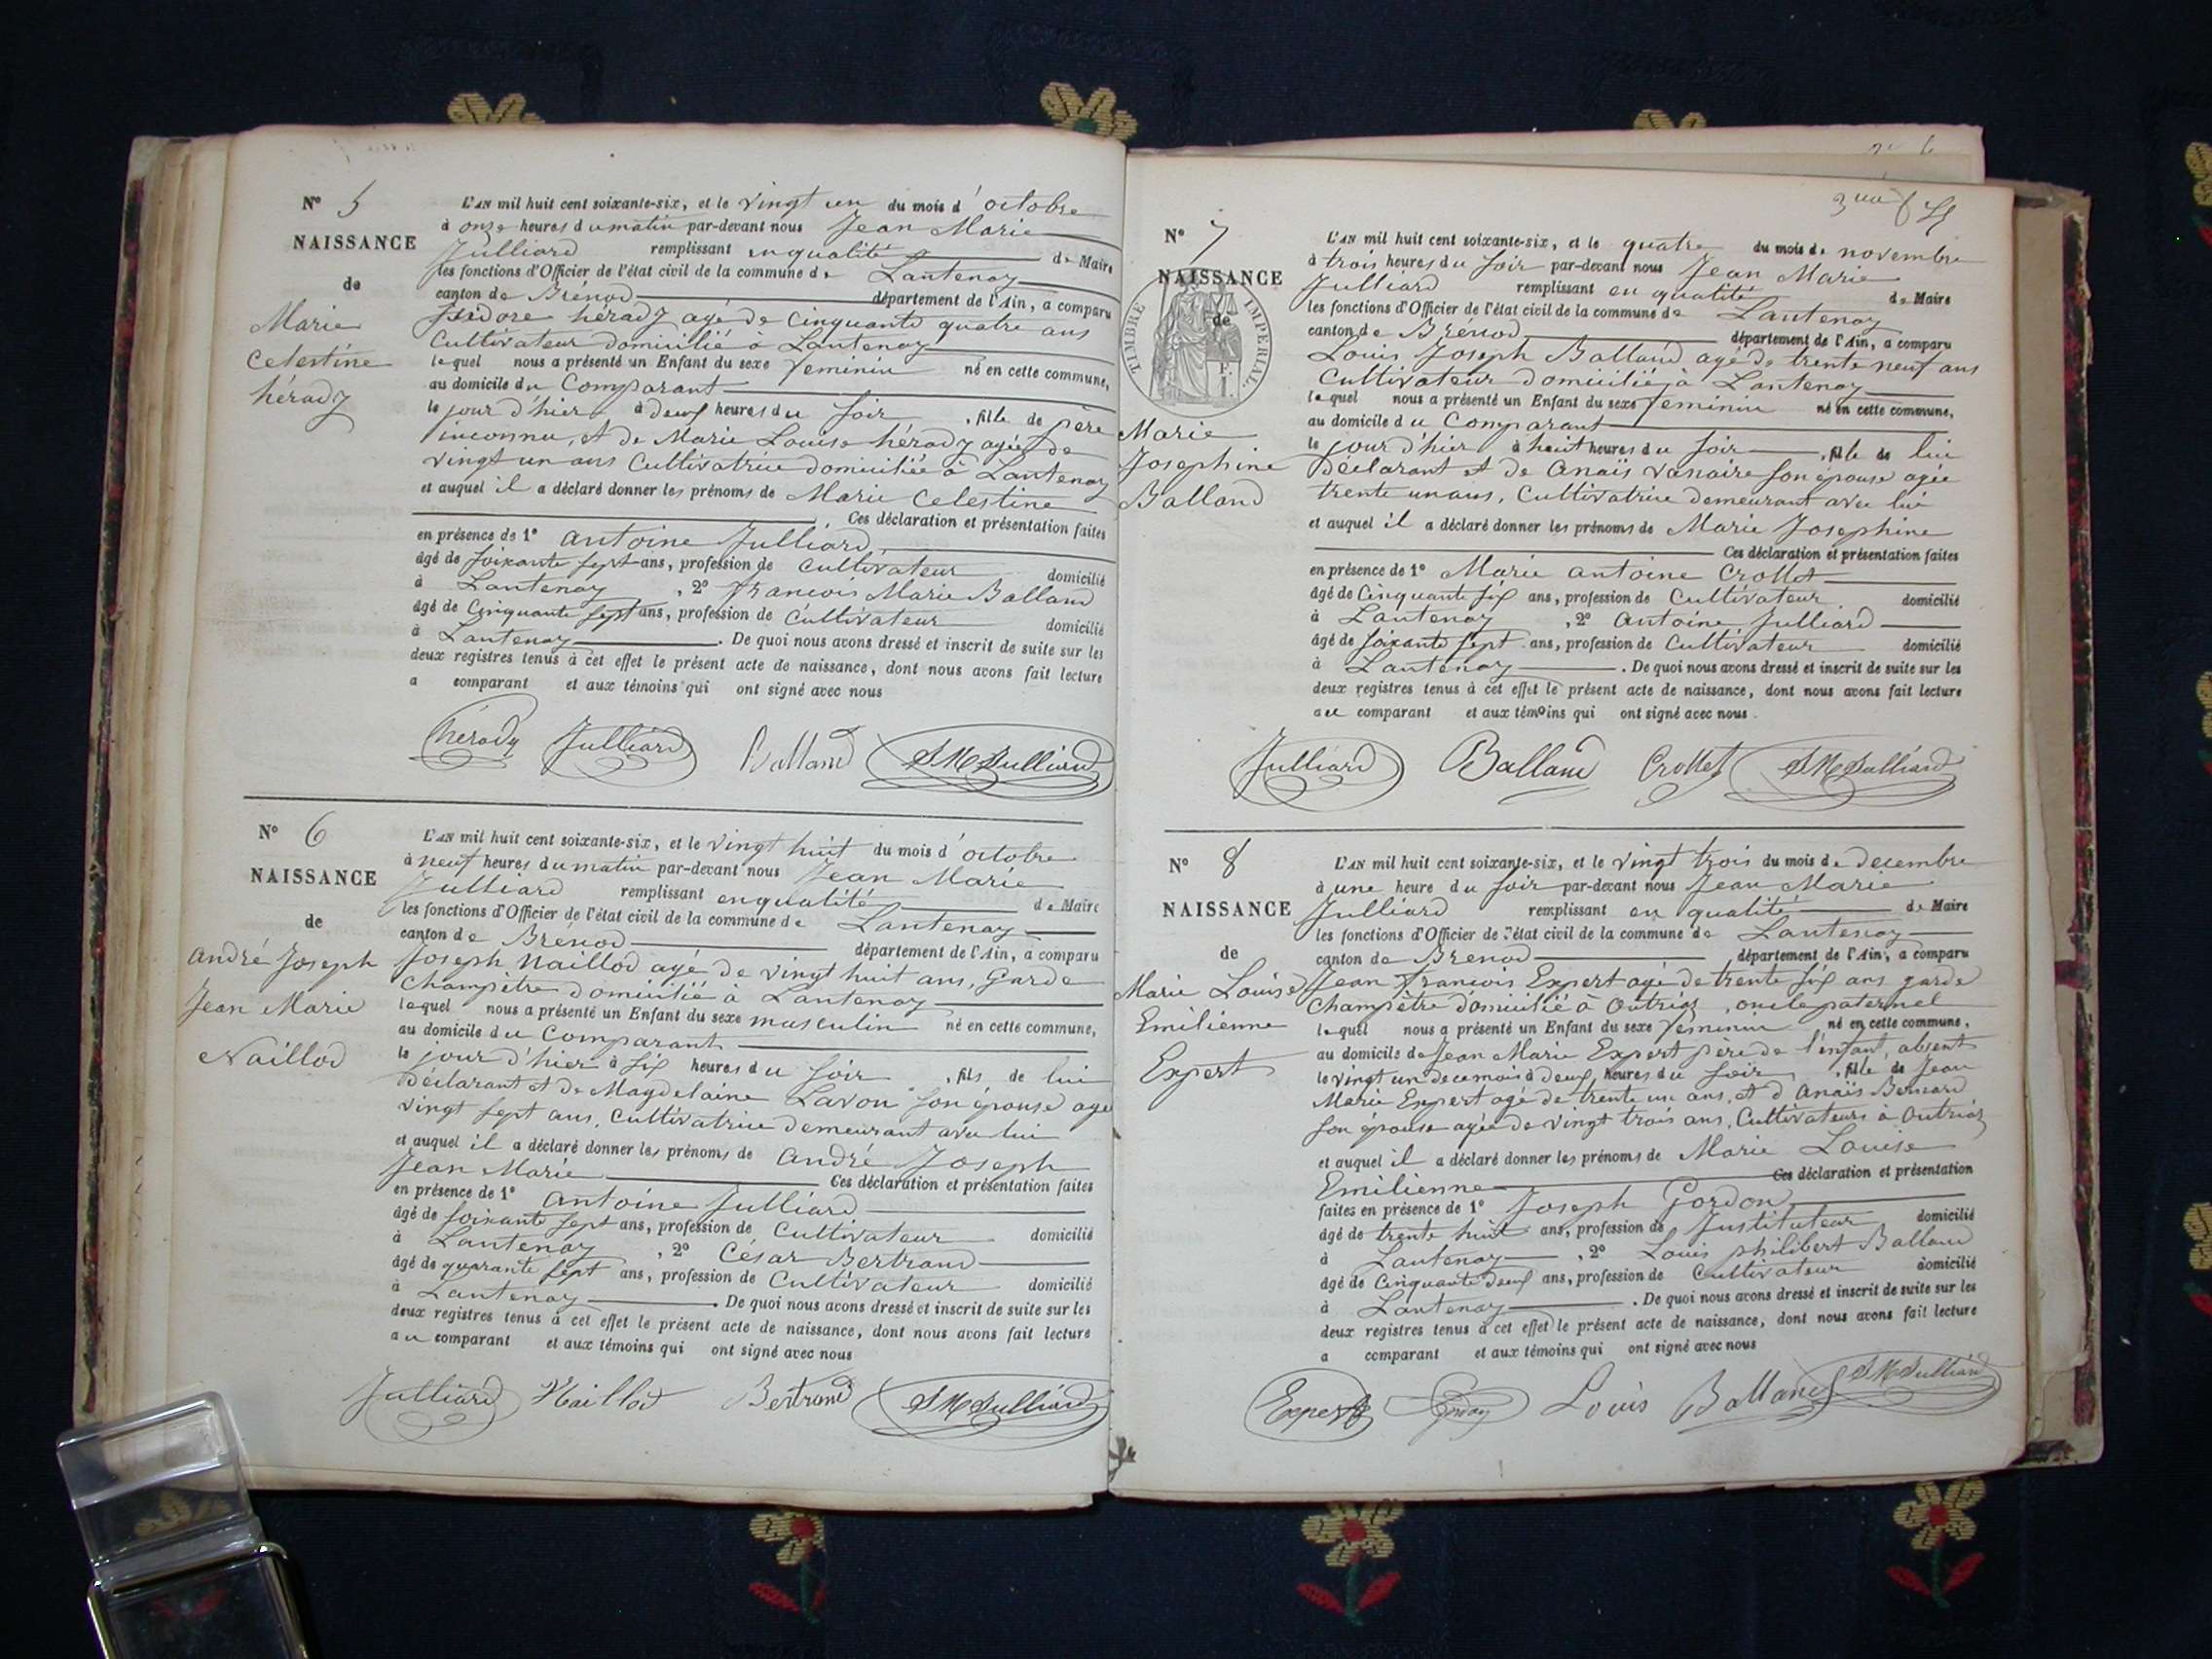 N° 5
NAISSANCE
de
Marie
Celestine
hérady
L'AN mil huit cent soixante-six, et le vingt un du mois d'octobre
à onze heures du matin par-devant nous Jean Marie
Julliard remplissant en qualité de Maire
les fonctions d'Officier de l'état civil de la commune de Lantenay
canton de Brénod département de l'Ain, a comparu
Isidore hérady agé de cinquante quatre ans
Cultivateur domicilié à Lantenay
lequel nous a présenté un Enfant du sexe feminin né en cette commune,
au domicile du Comparant
le jour d'hier à deux heures du soir, fille de père
inconnu, et de Marie Louise hérady agée de
vingt un ans Cultivatrice domiciliée à Lantenay
et auquel il a déclaré donner les prénoms de Marie Celestine
Ces déclaration et présentation faites
en présence de 1° antoine Julliard
âgé de soixante sept ans, profession de Cultivateur domicilié
à Lantenay, 2° françois Marie Balland
âgé de Cinquante sept ans, profession de Cultivateur domicilié
à Lantenay. De quoi nous avons dressé et inscrit de suite sur les
deux registres tenus à cet effet le présent acte de naissance, dont nous avons fait lecture
a comparant et aux témoins qui ont signé avec nous
hérady Julliard Balland JM Julliard
N° 6
NAISSANCE
de
andré Joseph
Jean Marie
Naillod
L'AN mil huit cent soixante-six, et le vingt huit du mois d'octobre
à neuf heures du matin par-devant nous Jean Marie
Julliard remplissant en qualité de Maire
les fonctions d'Officier de l'état civil de la commune de Lantenay
canton de Brénod département de l'Ain, a comparu
Joseph Naillod agé de vingt huit ans, Garde
Champêtre domicilié à Lantenay
lequel nous a présenté un Enfant du sexe masculin né en cette commune,
au domicile du Comparant
le jour d'hier à six heures du soir, fils de lui
Déclarant et de Magdelaine Lavou son épouse agé
vingt sept ans, Cultivatrice demeurant avec lui
et auquel il a déclaré donner les prénoms de andré Joseph
Jean Marie Ces déclaration et présentation faites
en présence de 1° antoine Julliard
âgé de soixante sept ans, profession de Cultivateur domicilié
à Lantenay, 2° César Bertrand
âgé de quarante sept ans, profession de Cultivateur domicilié
à Lantenay. De quoi nous avons dressé et inscrit de suite sur les
deux registres tenus à cet effet le présent acte de naissance, dont nous avons fait lecture
au comparant et aux témoins qui ont signé avec nous
Julliard Naillod Bertrand JM Julliard
N° 7
NAISSANCE
de
TIMBRE IMPERIAL.
Marie
Josephine
Balland
L'AN mil huit cent soixante-six, et le quatre du mois de novembre
à trois heures du soir par-devant nous Jean Marie
Julliard remplissant en qualité de Maire
les fonctions d'Officier de l'état civil de la commune de Lantenay
canton de Brénod département de l'Ain, a comparu
Louis Joseph Balland agé de trente neuf ans
Cultivateur domicilié à Lantenay
lequel nous a présenté un Enfant du sexe feminin né en cette commune,
au domicile du Comparant
le jour d'hier à huit heures du soir, fille de lui
Déclarant et de anaïs vanaire son épouse agée
trente un ans, Cultivatrice demeurant avec lui
et auquel il a déclaré donner les prénoms de Marie Josephine
Ces déclaration et présentation faites
en présence de 1° Marie antoine Crollet
âgé de Cinquante six ans, profession de Cultivateur domicilié
à Lantenay, 2° antoine Julliard
âgé de soixante sept ans, profession de Cultivateur domicilié
à Lantenay. De quoi nous avons dressé et inscrit de suite sur les
deux registres tenus à cet effet le présent acte de naissance, dont nous avons fait lecture
au comparant et aux témoins qui ont signé avec nous
Julliard Balland Crollet JM Julliard
N° 8
NAISSANCE
de
Marie Louise
Emilienne
Expert
L'AN mil huit cent soixante-six, et le vingt trois du mois de decembre
à une heure du soir par-devant nous Jean Marie
Julliard remplissant en qualité de Maire
les fonctions d'Officier de l'état civil de la commune de Lantenay
canton de Brenod département de l'Ain, a comparu
Jean françois Expert agé de trente six ans garde
Champêtre domicilié à Outriaz, oncle paternel
lequel nous a présenté un Enfant du sexe feminin né en cette commune,
au domicile de Jean Marie Expert père de l'enfant, absent
le vingt un de ce mois à deux heures du soir, fille de Jean
Marie Expert agé de trente un ans, et d'Anaïs Bernard
son épouse agée de vingt trois ans, Cultivateurs à Outriaz
et auquel il a déclaré donner les prénoms de Marie Louise
Emilienne Ces déclaration et présentation
faites en présence de 1° Joseph Gordon
âgé de trente huit ans, profession de Instituteur domicilié
à Lantenay, 2° Louis philibert Balland
âgé de Cinquante deux ans, profession de Cultivateur domicilié
à Lantenay. De quoi nous avons dressé et inscrit de suite sur les
deux registres tenus à cet effet le présent acte de naissance, dont nous avons fait lecture
a comparant et aux témoins qui ont signé avec nous
Expert Louis Balland JM Julliard